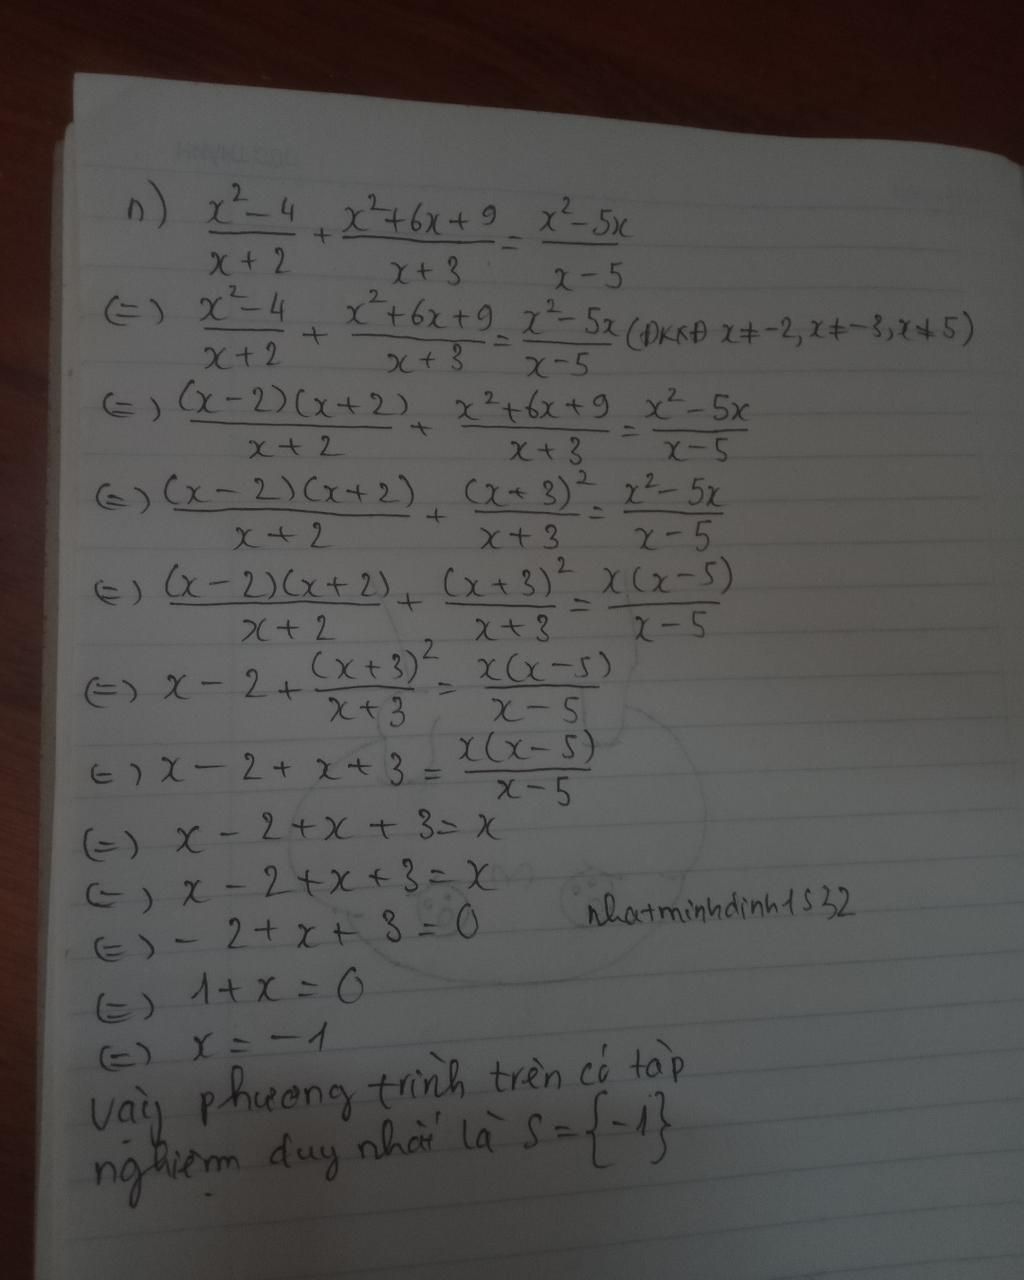 n) \frac{x^2-4}{x+2} + \frac{x^2+6x+9}{x+3} = \frac{x^2-5x}{x-5}
(=) \frac{x^2-4}{x+2} + \frac{x^2+6x+9}{x+3} = \frac{x^2-5x}{x-5} (ĐKXĐ x≠-2, x≠-3, x≠5)
(=) \frac{(x-2)(x+2)}{x+2} + \frac{x^2+6x+9}{x+3} = \frac{x^2-5x}{x-5}
(=) \frac{(x-2)(x+2)}{x+2} + \frac{(x+3)^2}{x+3} = \frac{x^2-5x}{x-5}
(=) \frac{(x-2)(x+2)}{x+2} + \frac{(x+3)^2}{x+3} = \frac{x(x-5)}{x-5}
(=) x-2+\frac{(x+3)^2}{x+3} = \frac{x(x-5)}{x-5}
(=) x-2+x+3 = \frac{x(x-5)}{x-5}
(=) x-2+x+3=x
(=) x-2+x+3=x
(=) -2+x+3=0
nhatminhdinh1532
(=) 1+x=0
(=) x=-1
Vậy phương trình trên có tập
nghiệm duy nhất là S={-1}